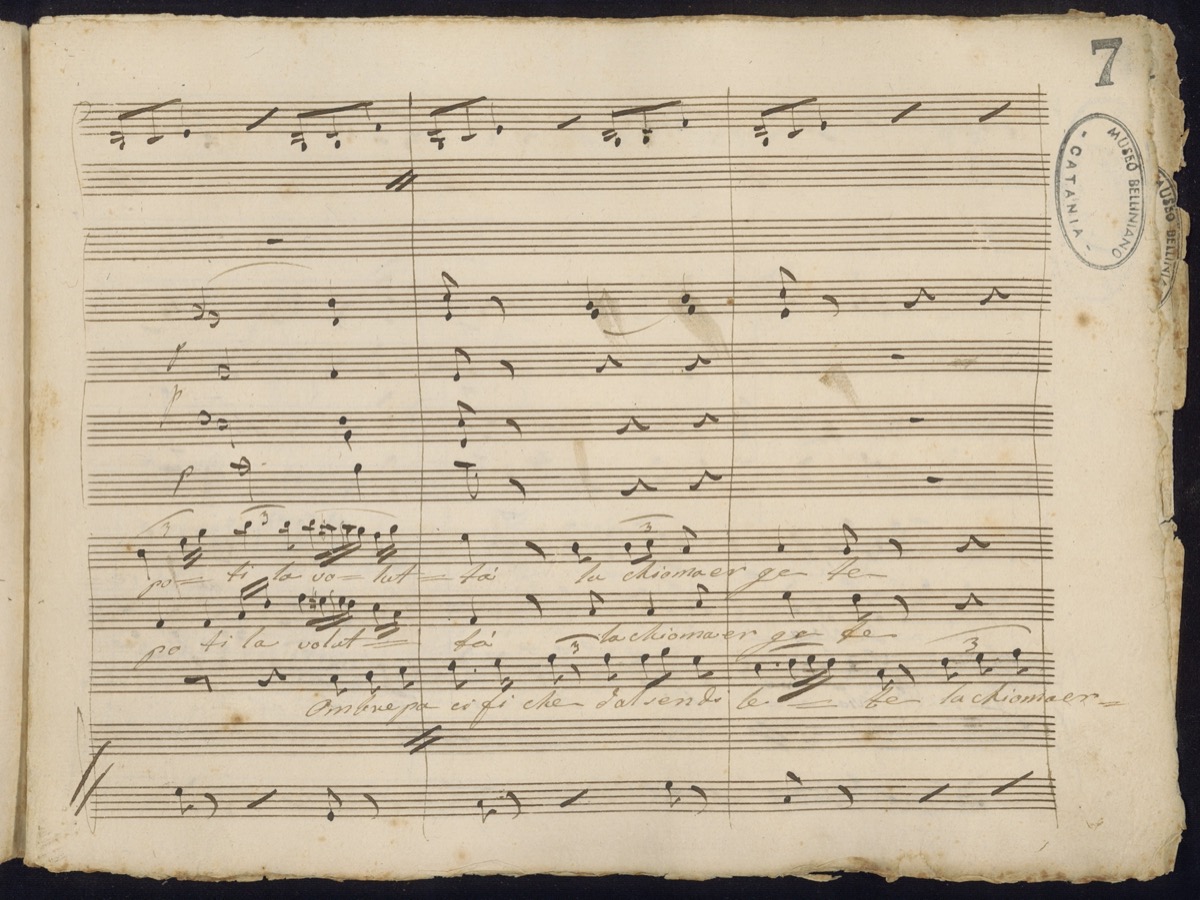 7
MUSEO BELLINIANO
- CATANIA -
MUSEO BELLINIA
p
p
p
3 3 3
po= ti la vo= lut= tà la chioma er ge te
po ti la volut= tà la chioma er ge te
3 3
Ombre pa ci fi che dal sen di le = te la chioma er=